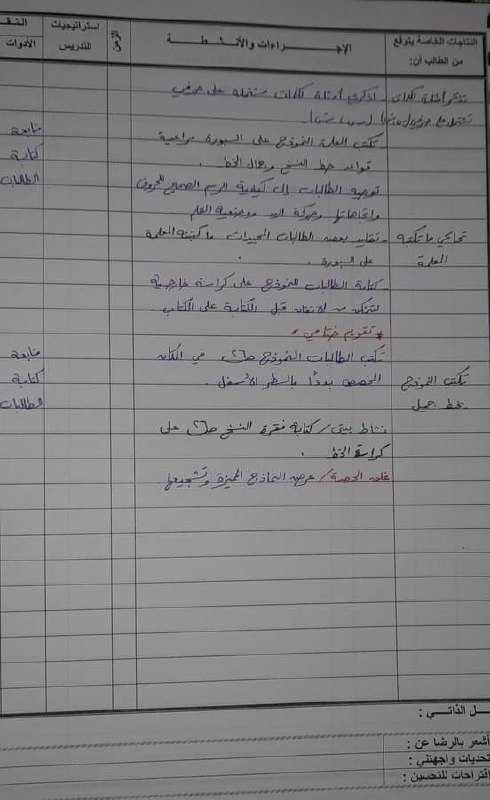 النتاجات الخاصة يتوقع من الطالب أن:
الإجـراءات والأنـشـطـة
الزمن
استراتيجيات التدريس
الأدوات
تذكر أمثلة لكلمات
اذكري أمثلة لكلمات مشتملة على حرفي
تكتب المعلمة النموذج على السبورة مراعية
قواعد خط النسخ وجمال الخط .
متابعة
كتابة
الطالبات
توجيه الطالبات إلى كيفية الرسم الصحيح للحروف
واتجاهاتها وحركة اليد ووضعية القلم
تحاكي ما تكتبه
المعلمة
تقليد بعض الطالبات المجيدات ما كتبته المعلمة
على السبورة .
كتابة الطالبات للنموذج على كراسة خارجية
للتمكن من الإتقان قبل الكتابة على الكتاب
* تقويم ختامي /
تكتب الطالبات النموذج ص٢٦ في المكان
المخصص بدءًا بالسطر الأسفل .
تكتب النموذج
بخط جميل
متابعة
كتابة
الطالبات
نشاط بيتي / كتابة فقرة النسخ ص٢٦ على
كراسة الخط .
غلق الحصة / عرض النماذج المميزة وتشجيعها
ـل الذاتـي :
أشعر بالرضا عن :
تحديات واجهتني :
اقتراحات للتحسين :